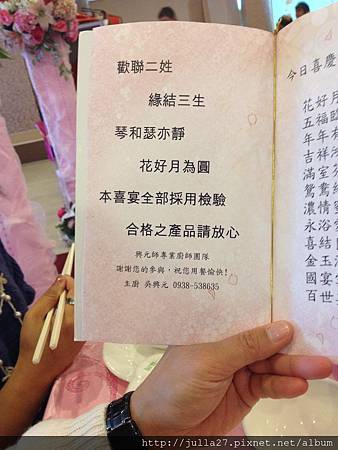 歡聯二姓
緣結三生
琴和瑟亦靜
花好月為圓
本喜宴全部採用檢驗
合格之產品請放心
興元師專業廚師團隊
謝謝您的參與,祝您用餐愉快!
主廚 吳興元 0938-538635
今日喜慶
花好月
五福臨
年年有
吉祥
滿室
鴛鴦
濃情蜜
永浴
喜結
金玉滿
國宴
百世
http://julla27.pixnet.net/album